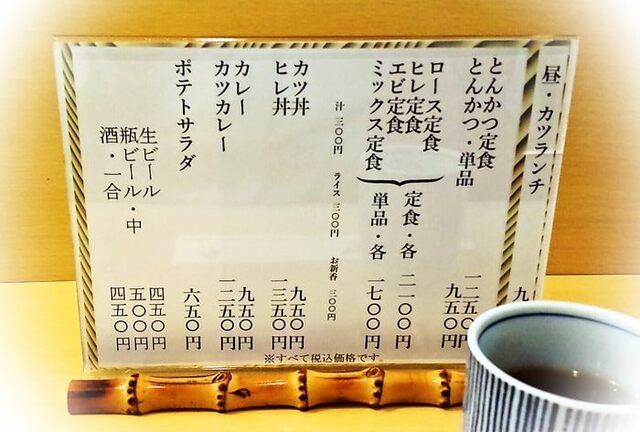 昼・カツランチ 九
とんかつ定食 一二五〇円
とんかつ・単品 九五〇円
ロース定食
ヒレ定食
エビ定食
ミックス定食
定食・各 二一〇〇円
単品・各 一七〇〇円
汁 三〇〇円 ライス 三〇〇円 お新香 三〇〇円
カツ丼 九五〇円
ヒレ丼 一三五〇円
カレー 九五〇円
カツカレー 一二五〇円
ポテトサラダ 六五〇円
生ビール 四五〇円
瓶ビール・中 五〇〇円
酒・一合 四五〇円
※すべて税込価格です。